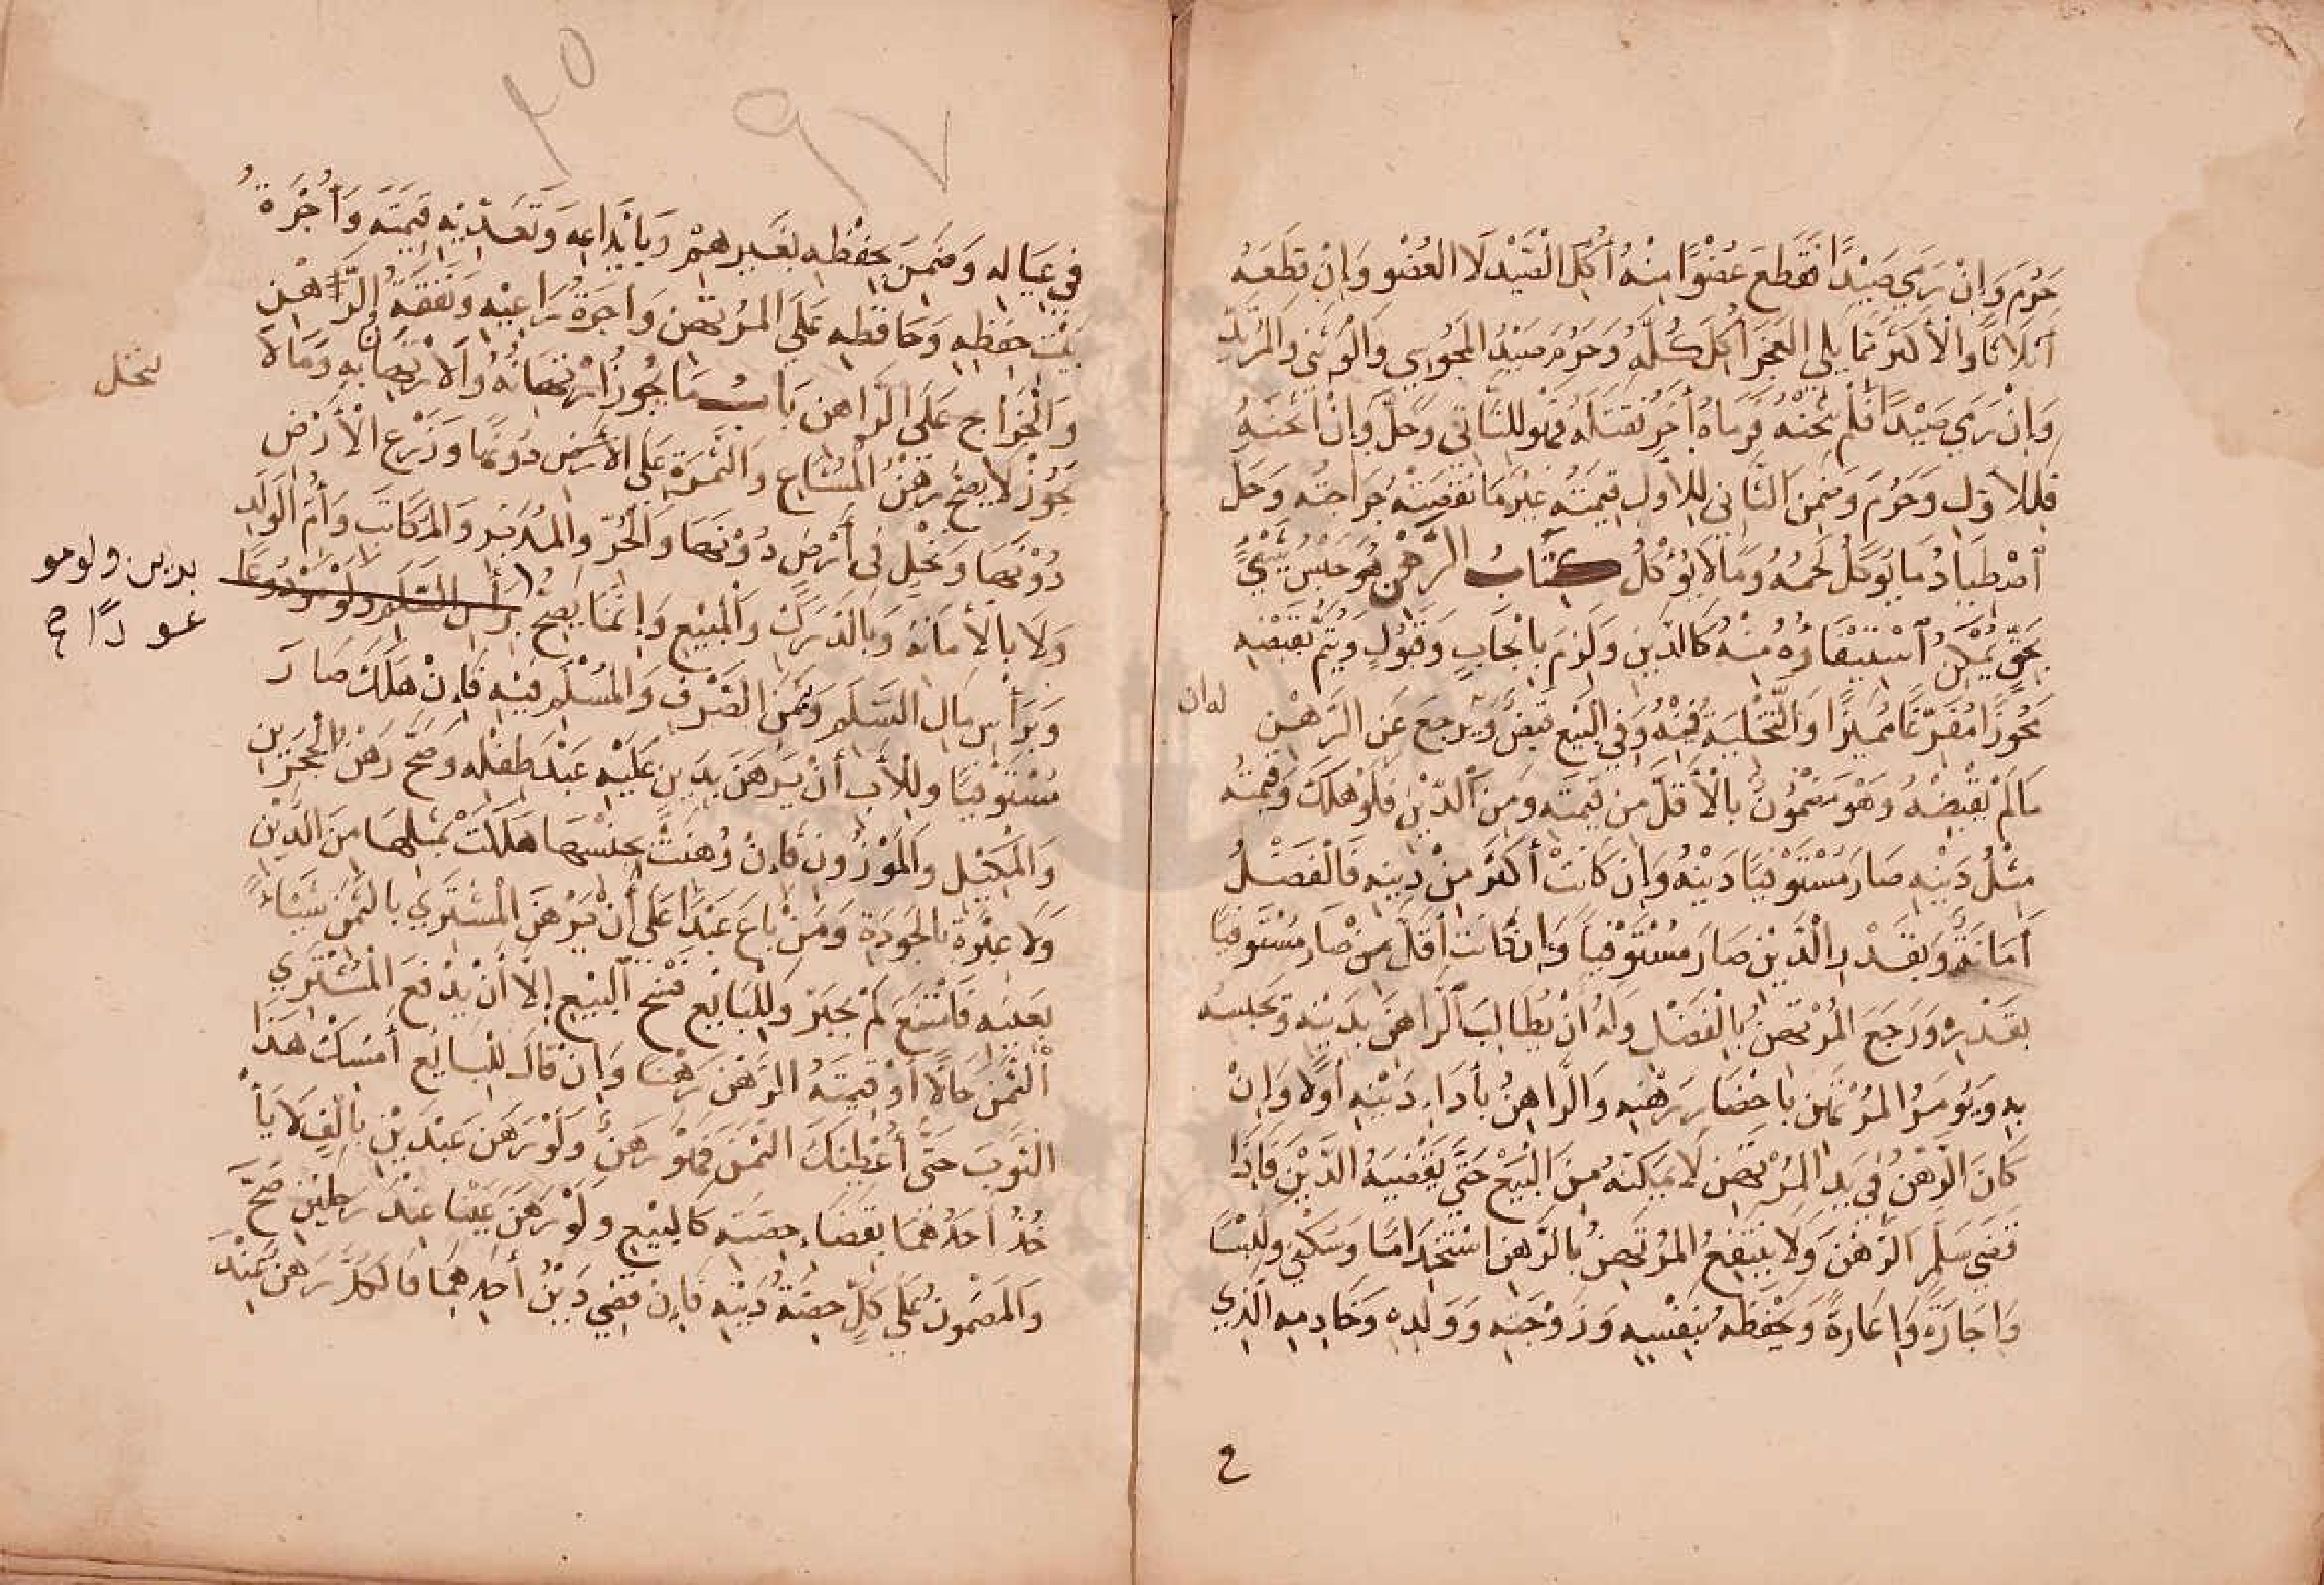 حَرُمَ وَإِنْ رَمَى صَيْدًا فَقَطَعَ عُضْوًا مِنْهُ أُكِلَ الصَّيْدُ لَا العُضْوُ وَإِنْ قَطَعَهُ
أَثْلَاثًا وَالْأَكْثَرُ مِمَّا يَلِي العَجُزَ أُكِلَ كُلُّهُ وَحَرُمَ صَيْدُ المَجُوسِي وَالْوَثَنِي وَالمُرْتَدِّ
وَإِنْ رَمَى صَيْدًا فَلَمْ يُثْخِنْهُ فَرَمَاهُ أَخَرُ فَقَتَلَهُ فَهُوَ لِلثَّانِي وَحَلَّ وَإِنْ أَثْخَنَهُ
فَلِلْأَوَّلِ وَحَرُمَ وَضَمِنَ الثَّانِي لِلْأَوَّلِ قِيمَتَهُ غَيْرَ مَا نَقَصَتْهُ جِرَاحَتُهُ وَحَلَّ
اصْطِيَادُ مَا يُوكَلُ لَحْمُهُ وَمَا لَا يُؤْكَلُ كِتَابُ الرَّهْنِ هُوَ حَبْسُ شَيْءٍ
بِحَقٍّ يُمْكِنُ اسْتِيْفَاؤُهُ مِنْهُ كَالدَّيْنِ وَلَزِمَ بِإِيْجَابٍ وَقَبُولٍ وَيَتِمُّ بِقَبْضِهِ
مَحُوزًا مُفَرَّغًا مُمَيَّزًا وَالتَّخْلِيَةُ فِيْهُ وَفِي البَيْعِ قَبْضٌ وَيَرْجِعَ عَنِ الرَّهْنِ
مَا لَمْ يَقْبِضْهُ وَهُوَ مَضْمُونٌ بِالْأَقَلِّ مِنْ قِيمَتِهِ وَمِنَ الدَّيْنِ فَلَوْ هَلَكَ وَقِيْمَتُهُ
مِثْلُ دَيْنِهِ صَارَ مُسْتَوْفِيًا دَيْنَهُ وَإِنْ كَانَتْ أَكْثَرَ مِنْ دَيْنِهِ فَالْفَضْلُ
أَمَانَةٌ وَبِقَدْرِ الْدَّيْنِ صَارَ مُسْتَوْفِيًا وَإِنْ كَانَتْ أَقَلَّ مِنْ صَارَ مُسْتَوْفِيًا
بِقَدْرِهِ وَرَجَعَ المُرْتَهِنُ بِالْفَضْلِ وَلَهُ أَنْ يُطَالِبَ الرَّاهِنَ بِدَيْنِهِ وَيَحْبِسُهُ
بِهِ وَيُومَرُ المُرْتَهِنُ بِاحْضَارِ رَهْنِهِ وَالرَّاهِنُ بِأَدَاءِ دَيْنِهِ أَوَّلًا وَإِنْ
كَانَ الرَّهْنُ فِي يَدِ المُرْتَهِنِ لَا يُمَكِنُهُ مِنَ الْبَيْعِ حَتَّى يَقْضِيَهُ الدَّيْنَ فَإِذَا
قَضَى سَلَّمَ الرَّهْنَ وَلَا يَنْتَفِعُ المُرْتَهِنُ بِالرَّهْنِ اسْتِخْدَامًا وَسُكْنَى وَلُبْسًا
وَاجَارَةً وَإِعَارَةً وَيَحْفَظُهُ بِنَفْسِهِ وَزَوْجَتِهِ وَوَلَدِهِ وَخَادِمِهِ الَّذِي
٩٧
فِي عِيَالِهِ وَضَمِنَ بِحِفْظِهِ بِغَيْرِهِمْ وَبِايْدَاعِهِ وَتَعَدِّيْهِ قِيْمَتَهُ وَأُجْرَةُ
بَيْتِ حِفْظِهِ وَحَافِظِهِ عَلَى المُرْتَهِنِ وَاجْرَةُ رَاعِيْهِ وَنَفَقَةُ الرَّاهْنِ
وَالْخَرَاجِ عَلَى الرَّاهِنِ بَابُ مَا يَجُوزُ ارْتِهَانُهُ وَالارْتِهَانُ بِهِ وَمَا لَا
يَجُوزُ لَا يَصِحُّ رَهْنُ الْمُشَاعِ وَالثَّمَرَةِ عَلَى الْأَرْضِ دُونَهَا وَزَرْعِ الْأَرْضِ
دُوْنَهَا وَنَخْلٍ فِي أَرْضٍ دُوْنَهَا وَالْحُرِّ وَالمُدَبَّرِ وَالمُكَاتَبِ وَأُمِّ الْوَلَدِ
وَلَا بِالْأَمَانَةِ وَبِالدَّرَكِ وَالْمَبِيْعِ وَإِنَّمَا يَصِحُّ
بدين ولو مو
عودًا ح
وَبِرَأْسِ مَالِ السَّلَمِ وَثَمَنِ الصَّرْفِ وَالمُسْلَمِ فِيْهِ فَإِنْ هَلَكَ صَارَ
مُسْتَوْفِيًا وَلِلْأَبِ أَنْ يَرْهَنَ بِدَيْنٍ عَلَيْهِ عَبْدَ طِفْلِهِ وَصَحَّ رَهْنُ الْحَجَرَيْنِ
وَالْمَكِيْلِ وَالْمَوْزُونِ فَإِنْ رُهِنَتْ بِجِنْسِهَا هَلَكَتْ بِمِثْلِهَا مِنَ الدَّيْنِ
وَلَا عِبْرَةَ بِالْجَوْدَةِ وَمَنْ بَاعَ عَبْدًا عَلَى أَنْ يَرْهَنَ الْمُشْتَرِي بِالثَّمَنِ شَيْئًا
بِعَيْنِهِ فَامْتَنَعَ لَمْ يُجْبَرْ وَلِلْبَايِعِ فَسْخُ الْبَيْعِ إِلَّا أَنْ يَدْفَعَ الْمُشْتَرِي
الثَّمَنَ حَالًا أَوْ قِيْمَتَهُ الرَّهْنَ رَهْنًا وَإِنْ قَالَ لِلْبَايِعِ أَمْسِكْ هَذَا
الثَّوْبَ حَتَّى أُعْطِيَكَ الثَّمَنَ فَهُوَ رَهْنٌ وَلَوْ رَهَنَ عَبْدَيْنِ بِأَلْفٍ لَا يَأْ
خُذُ أَحَدَهُمَا بِقَضَاءِ حِصَّتِهِ كَالبَيْعِ وَلَوْ رَهَنَ عَيْنًا عِنْدَ رَجُلَيْنِ صَحَّ
وَالمَضْمُونُ عَلَى كُلٍّ حِصَّةُ دَيْنِهِ فَإِنْ قَضَى دَيْنَ أَحَدِهِمَا فَالْكُلُّ رَهْنٌ عِنْدَ